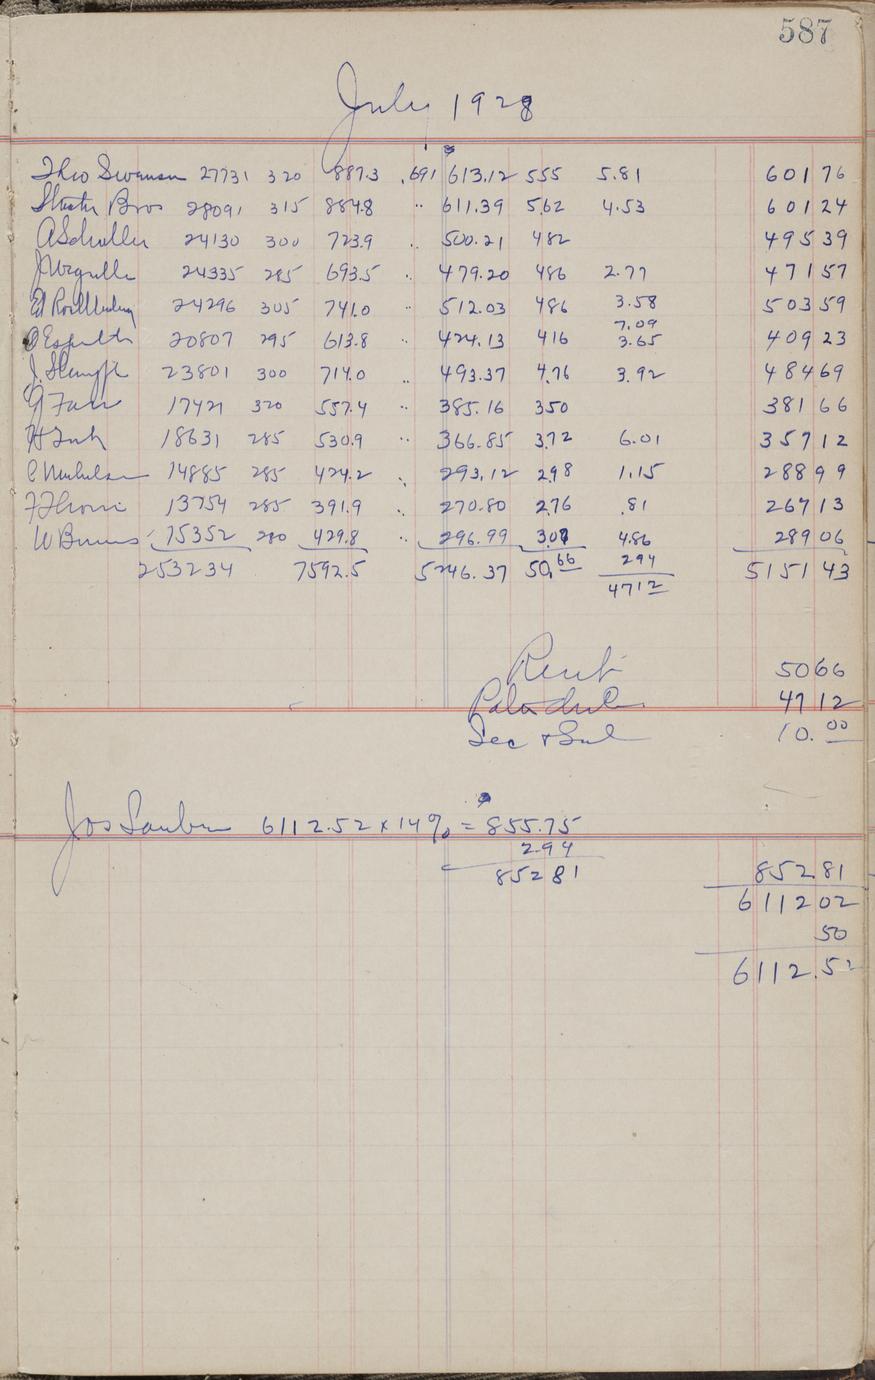 587
July 1928
Theo Swanson 27731 320 887.3 .691 613.12 555 5.81 601 76
Bros 28091 315 884.8 " 611.39 5.62 4.53 601 24
A Schuller 24130 300 723.9 " 500.21 482 495 39
24335 285 693.5 " 479.20 486 2.77 471 57
Ed 24296 305 741.0 " 512.03 486 3.58 503 59
7.09
20807 295 613.8 " 424.13 416 3.65 409 23
J. 23801 300 714.0 " 493.37 4.76 3.92 484 69
17421 320 557.4 " 385.16 350 381 66
H 18631 285 530.9 " 366.85 3.72 6.01 357 12
C 14885 285 424.2 " 293.12 298 1.15 288 99
F 13754 285 391.9 " 270.80 2.76 .81 267 13
W 15352 280 429.8 " 296.99 307 4.86 289 06
294
253234 7592.5 5246.37 50.66 5151 43
4712
Rent 50 66
47 12
Sec & 10.00
Jos 6112.52 x 14% = 855.75
2.94
852 81 852 81
6112 02
50
6112.52